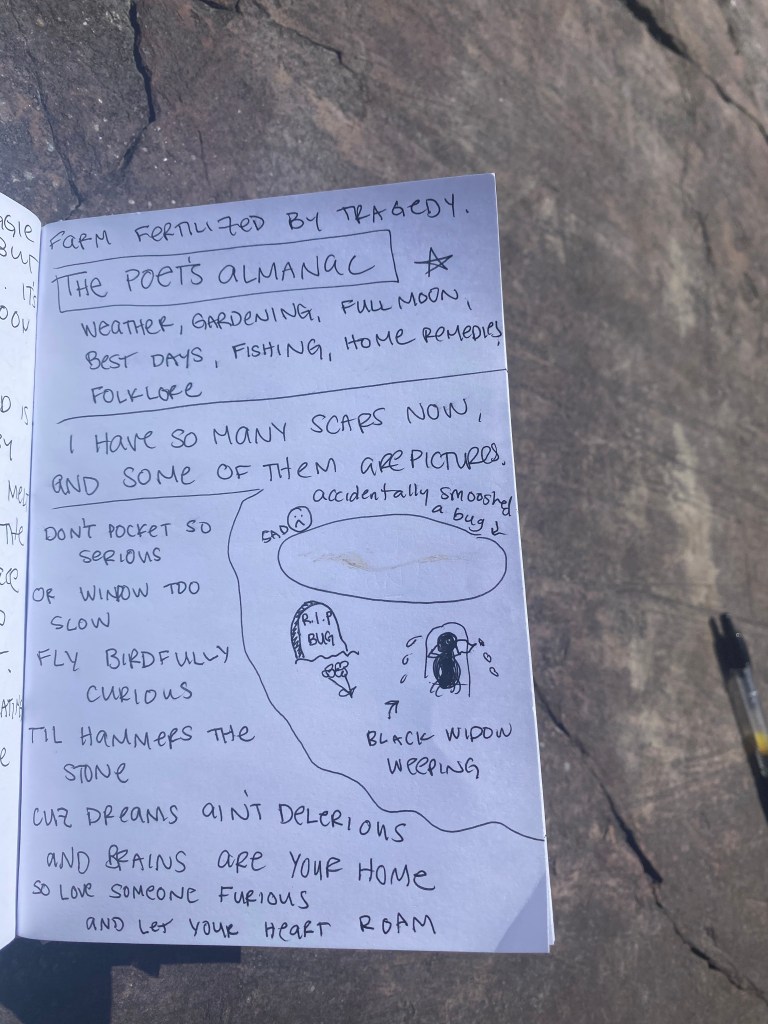 AGIE
BUT
IT'S
FARM FERTILIZED BY TRAGEDY.
THE POET'S ALMANAC
WEATHER, GARDENING, FULL MOON,
BEST DAYS, FISHING, HOME REMEDIES,
FOLKLORE
I HAVE SO MANY SCARS NOW,
AND SOME OF THEM ARE PICTURES.
accidentally smooshed
a bug
SAD
R.I.P
BUG
BLACK WIDOW
WEEPING
DON'T POCKET SO
SERIOUS
OR WINDOW TOO
SLOW
FLY BIRDFULLY
CURIOUS
TIL HAMMERS THE
STONE
CUZ DREAMS AIN'T DELERIOUS
AND BRAINS ARE YOUR HOME
SO LOVE SOMEONE FURIOUS
AND LET YOUR HEART ROAM